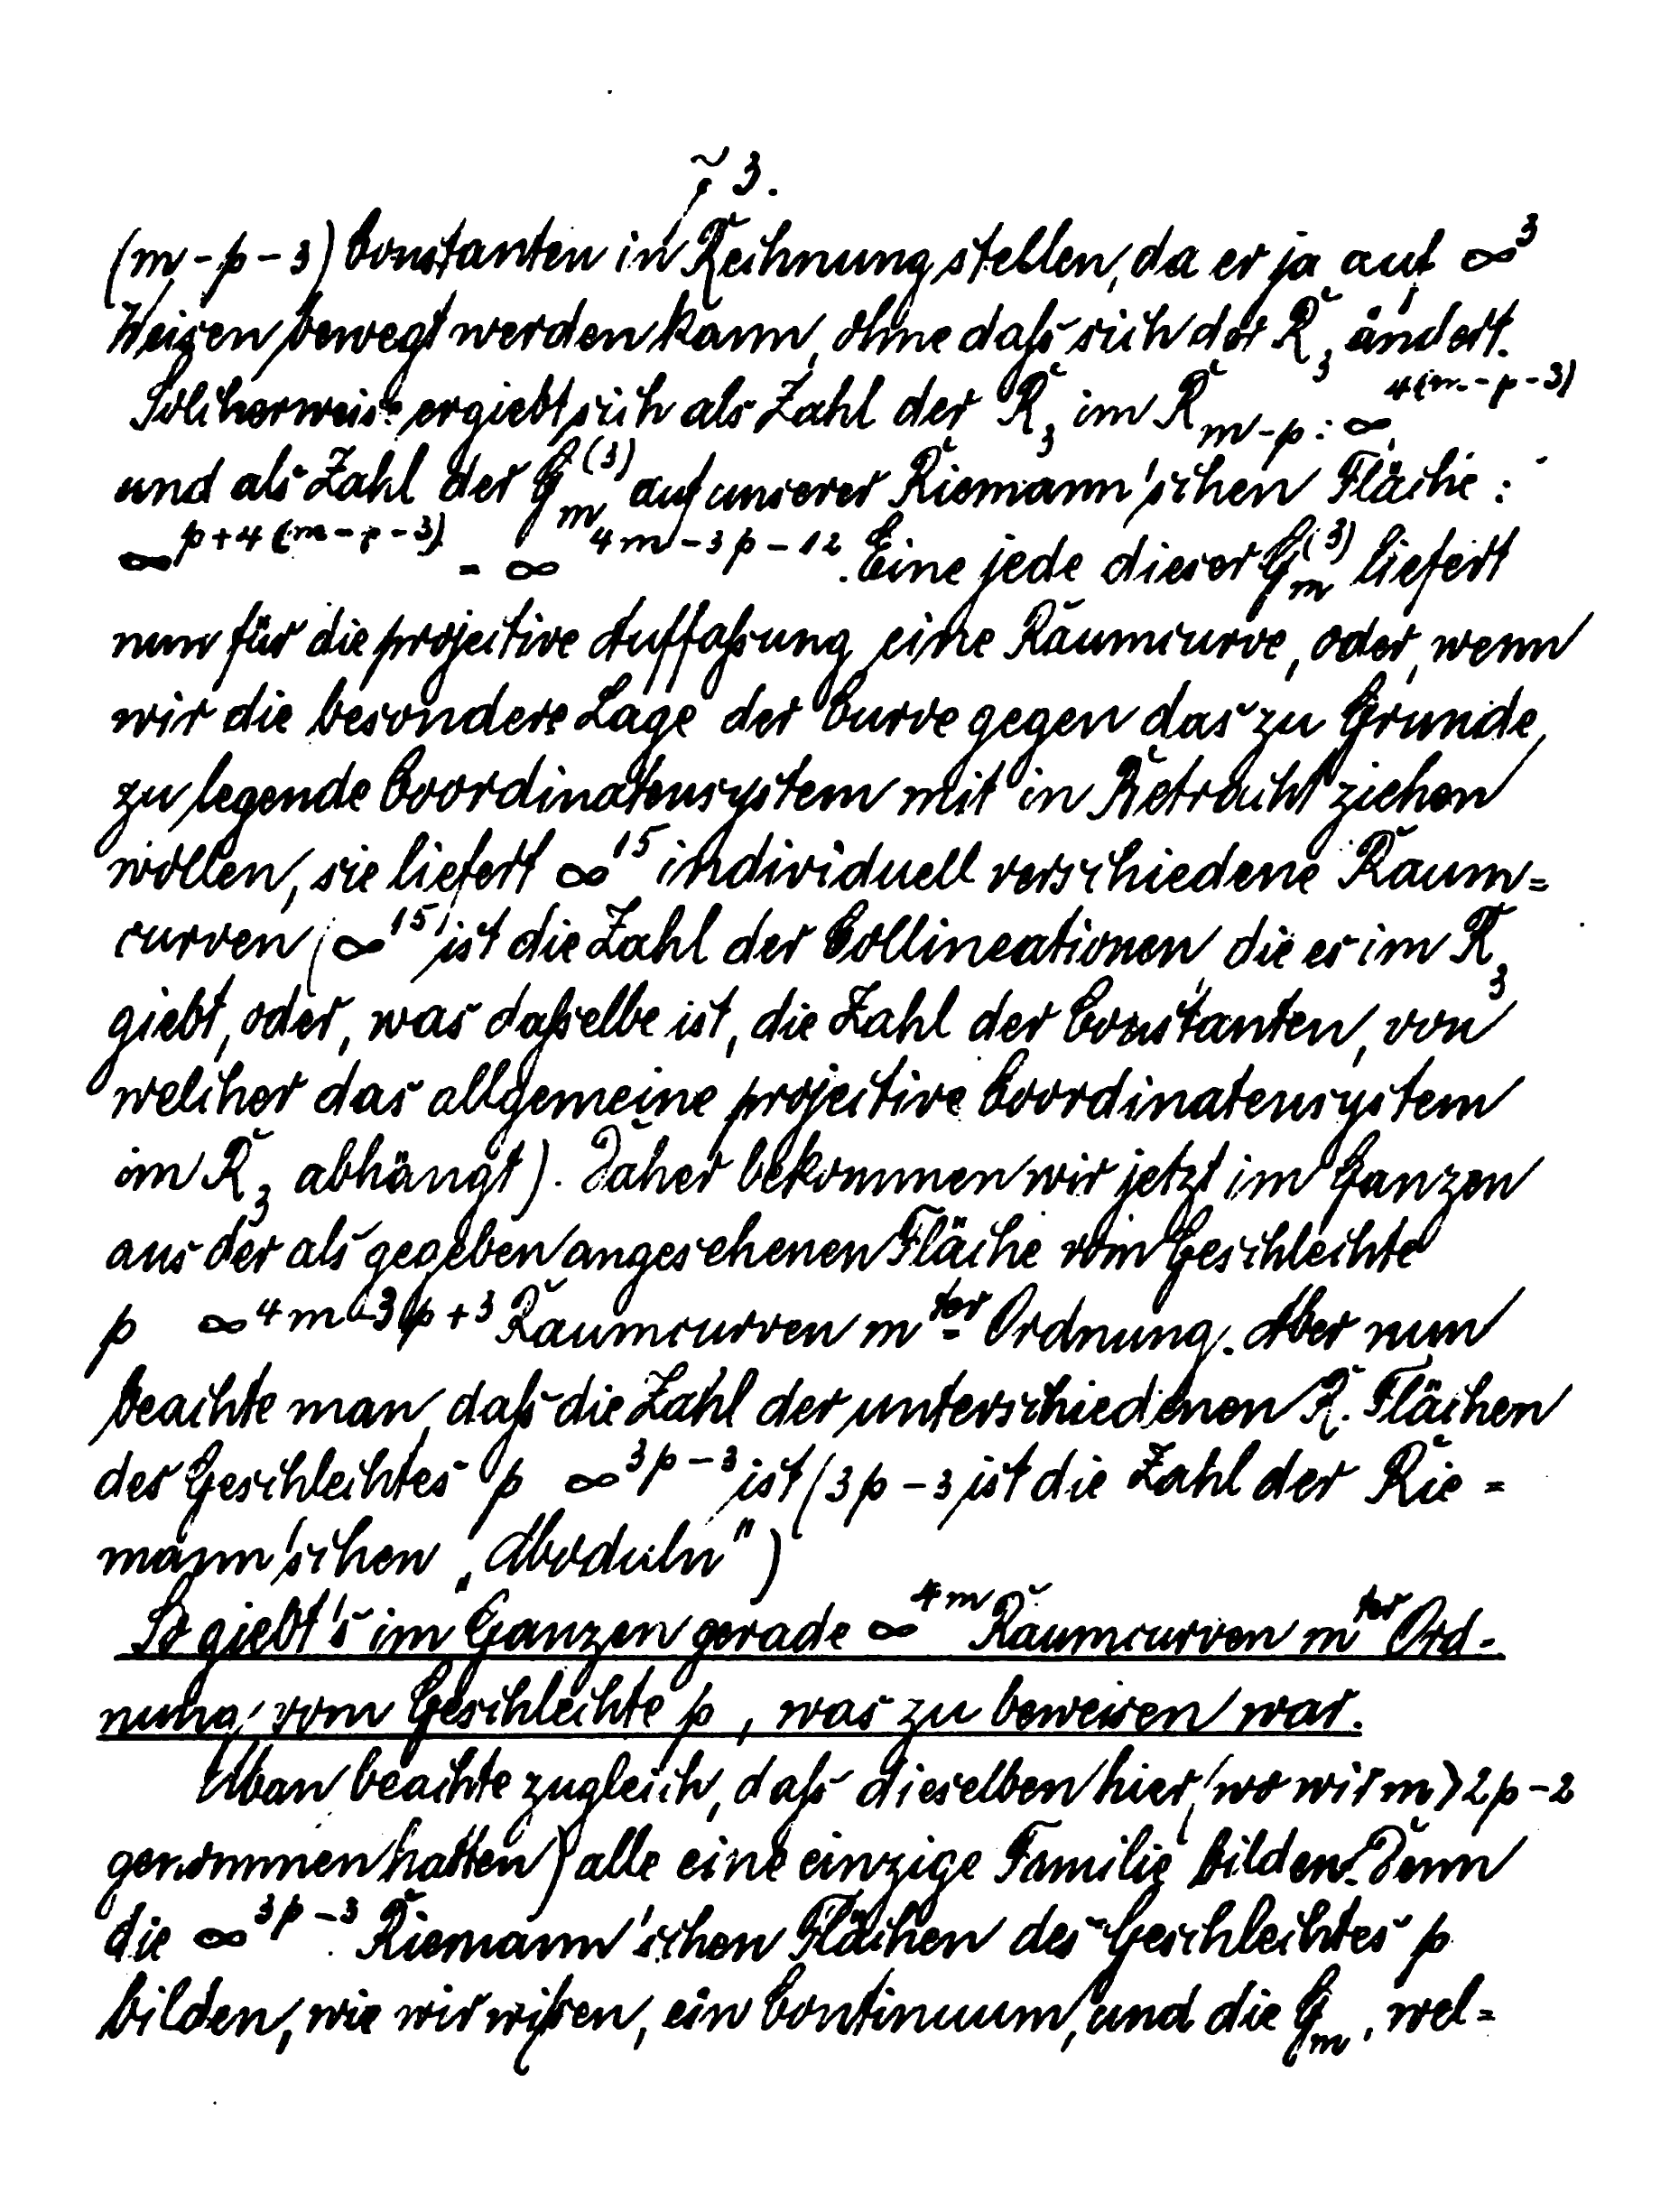 73.
(m-p-3) Constanten in Rechnung stellen, da er ja auf ∞³
Weisen bewegt werden kann, ohne daß sich der R₃ ändert.
Solcherweise ergiebt sich als Zahl der R₃ im R_{m-p}: ∞^{4(m-p-3)},
und als Zahl der G_m^{(3)} auf unserer Riemann'schen Fläche:
∞^{p+4(m-p-3)} = ∞^{4m-3p-12}. Eine jede dieser G_m^{(3)} liefert
nun für die projective Auffaßung eine Raumcurve, oder, wenn
wir die besondere Lage der Curve gegen das zu Grunde
zu legende Coordinatensystem mit in Betracht ziehen
wollen, sie liefert ∞^{15} individuell verschiedene Raum=
curven (∞^{15} ist die Zahl der Collineationen, die es im R₃
giebt, oder, was daßelbe ist, die Zahl der Constanten, von
welcher das allgemeine projective Coordinatensystem
im R₃ abhängt). Daher bekommen wir jetzt im Ganzen
aus der als gegeben angesehenen Fläche vom Geschlechte
p ∞^{4m-3p+3} Raumcurven m^{ter} Ordnung. Aber nun
beachte man, daß die Zahl der unterschiedenen R. Flächen
des Geschlechtes p ∞^{3p-3} ist (3p-3 ist die Zahl der Rie=
mann'schen „Moduln")
So giebt's im Ganzen gerade ∞^{4m} Raumcurven m^{ter} Ord-
nung vom Geschlechte p, was zu beweisen war.
Man beachte zugleich, daß dieselben hier (wo wir m>2p-2
genommen hatten) alle eine einzige Familie bilden. Denn
die ∞^{3p-3} Riemann'schen Flächen des Geschlechtes p
bilden, wie wir wißen, ein Continuum, und die G_m, wel=